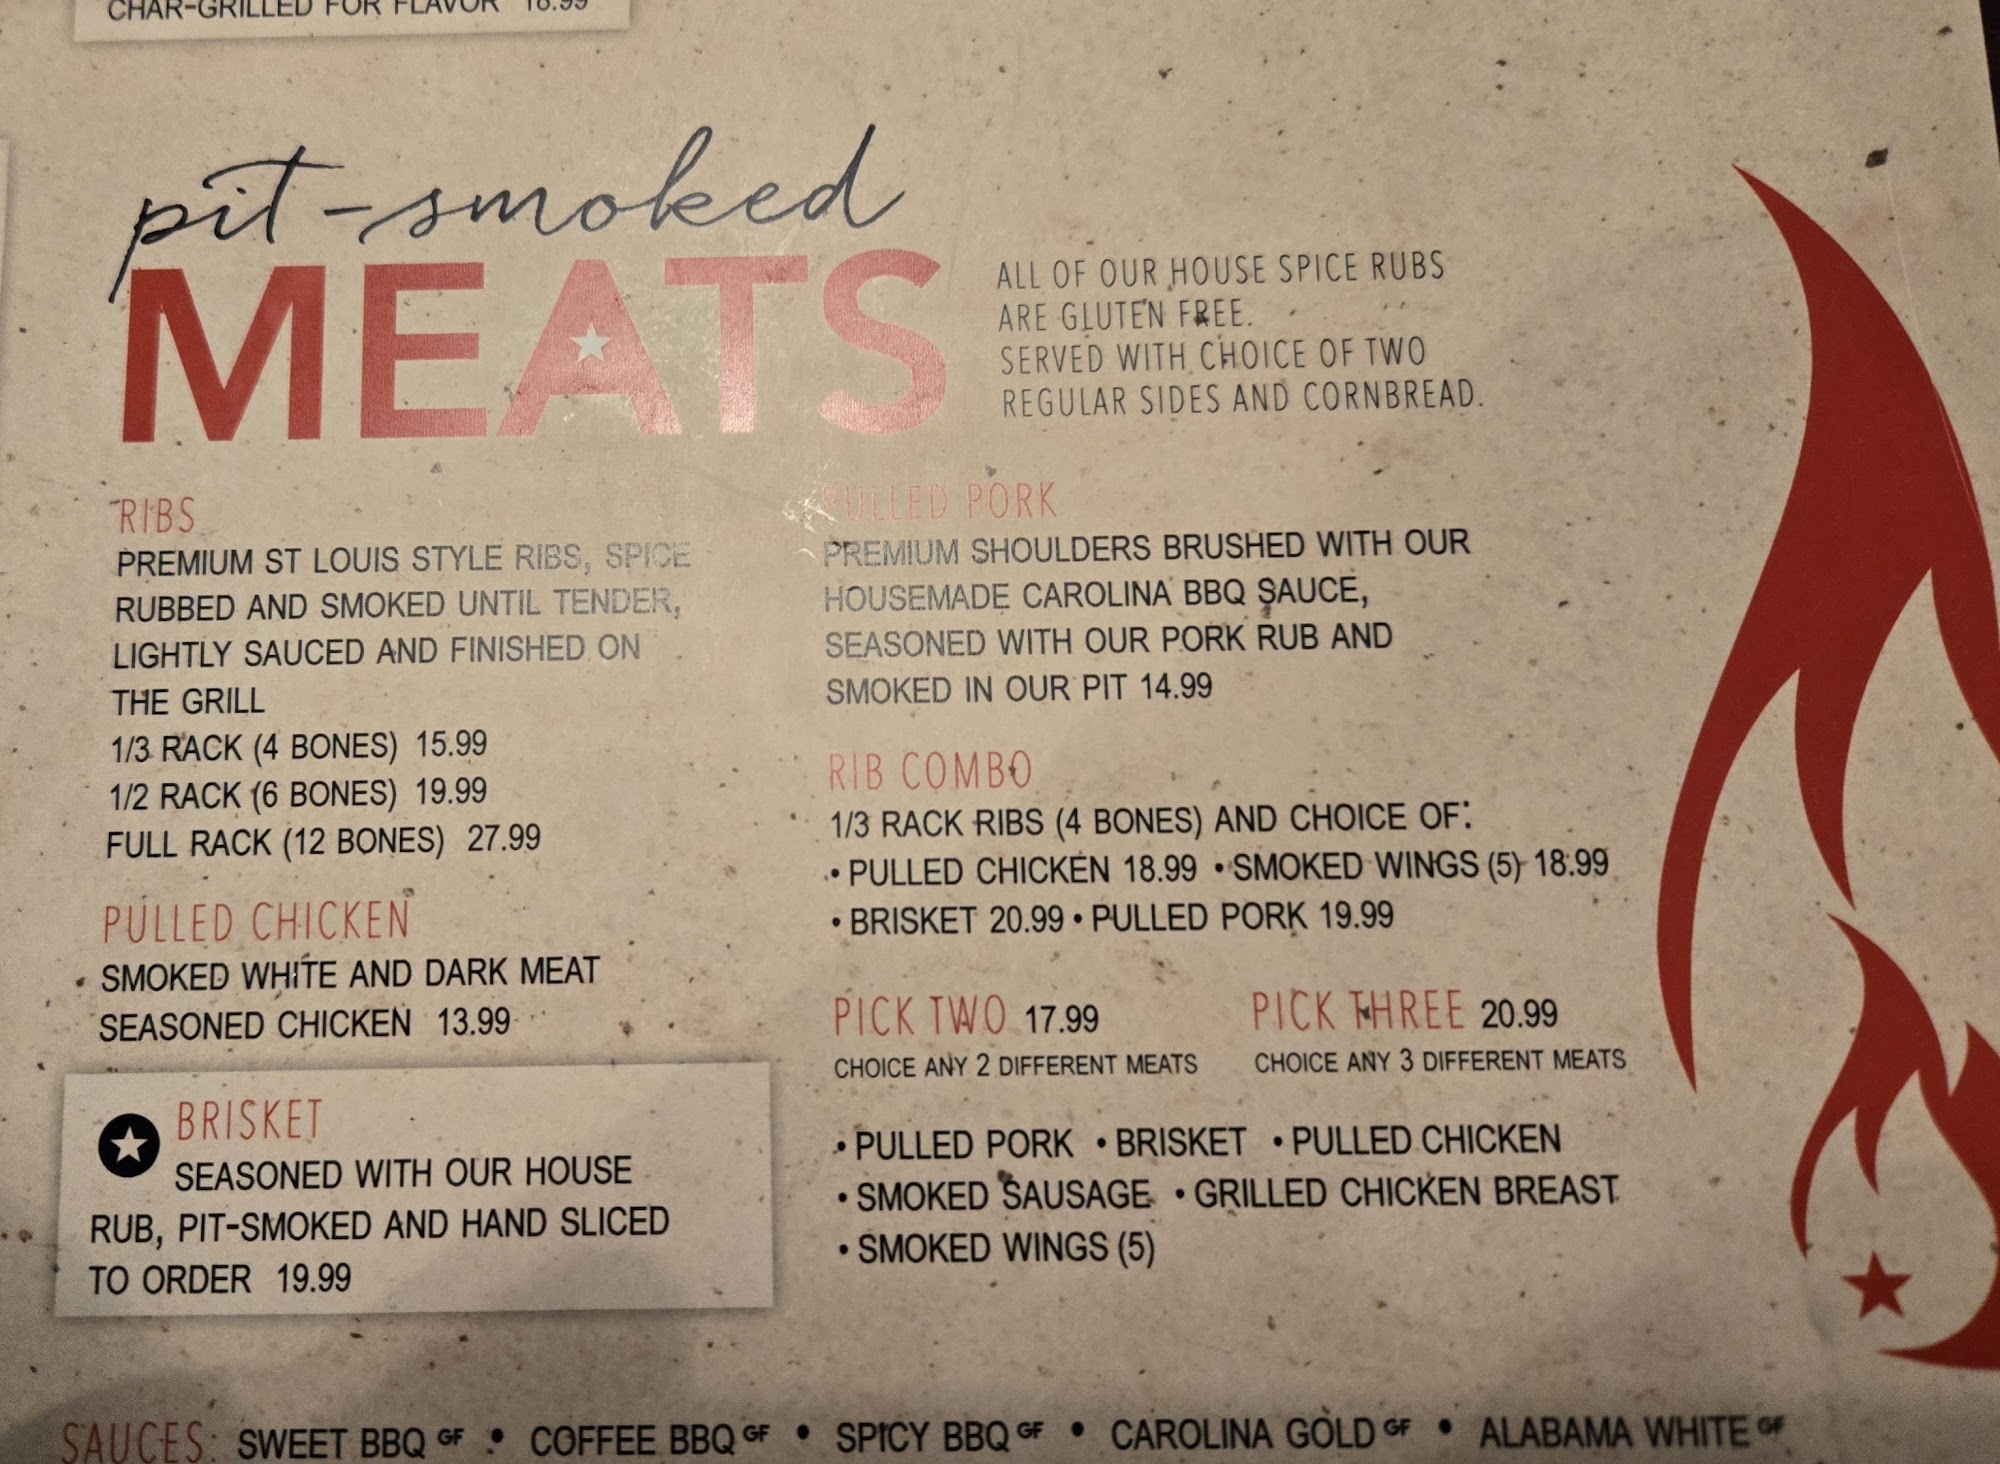 CHAR-GRILLED FOR FLAVOR 18.99
pit-smoked
MEATS
ALL OF OUR HOUSE SPICE RUBS
ARE GLUTEN FREE.
SERVED WITH CHOICE OF TWO
REGULAR SIDES AND CORNBREAD.
RIBS
PREMIUM ST LOUIS STYLE RIBS, SPICE
RUBBED AND SMOKED UNTIL TENDER,
LIGHTLY SAUCED AND FINISHED ON
THE GRILL
1/3 RACK (4 BONES) 15.99
1/2 RACK (6 BONES) 19.99
FULL RACK (12 BONES) 27.99
PULLED CHICKEN
SMOKED WHITE AND DARK MEAT
SEASONED CHICKEN 13.99
BRISKET
SEASONED WITH OUR HOUSE
RUB, PIT-SMOKED AND HAND SLICED
TO ORDER 19.99
PULLED PORK
PREMIUM SHOULDERS BRUSHED WITH OUR
HOUSEMADE CAROLINA BBQ SAUCE,
SEASONED WITH OUR PORK RUB AND
SMOKED IN OUR PIT 14.99
RIB COMBO
1/3 RACK RIBS (4 BONES) AND CHOICE OF:
• PULLED CHICKEN 18.99 • SMOKED WINGS (5) 18.99
• BRISKET 20.99 • PULLED PORK 19.99
PICK TWO 17.99
CHOICE ANY 2 DIFFERENT MEATS
PICK THREE 20.99
CHOICE ANY 3 DIFFERENT MEATS
• PULLED PORK • BRISKET • PULLED CHICKEN
• SMOKED SAUSAGE • GRILLED CHICKEN BREAST
• SMOKED WINGS (5)
SAUCES: SWEET BBQ GF • COFFEE BBQ GF • SPICY BBQ GF • CAROLINA GOLD GF • ALABAMA WHITE GF